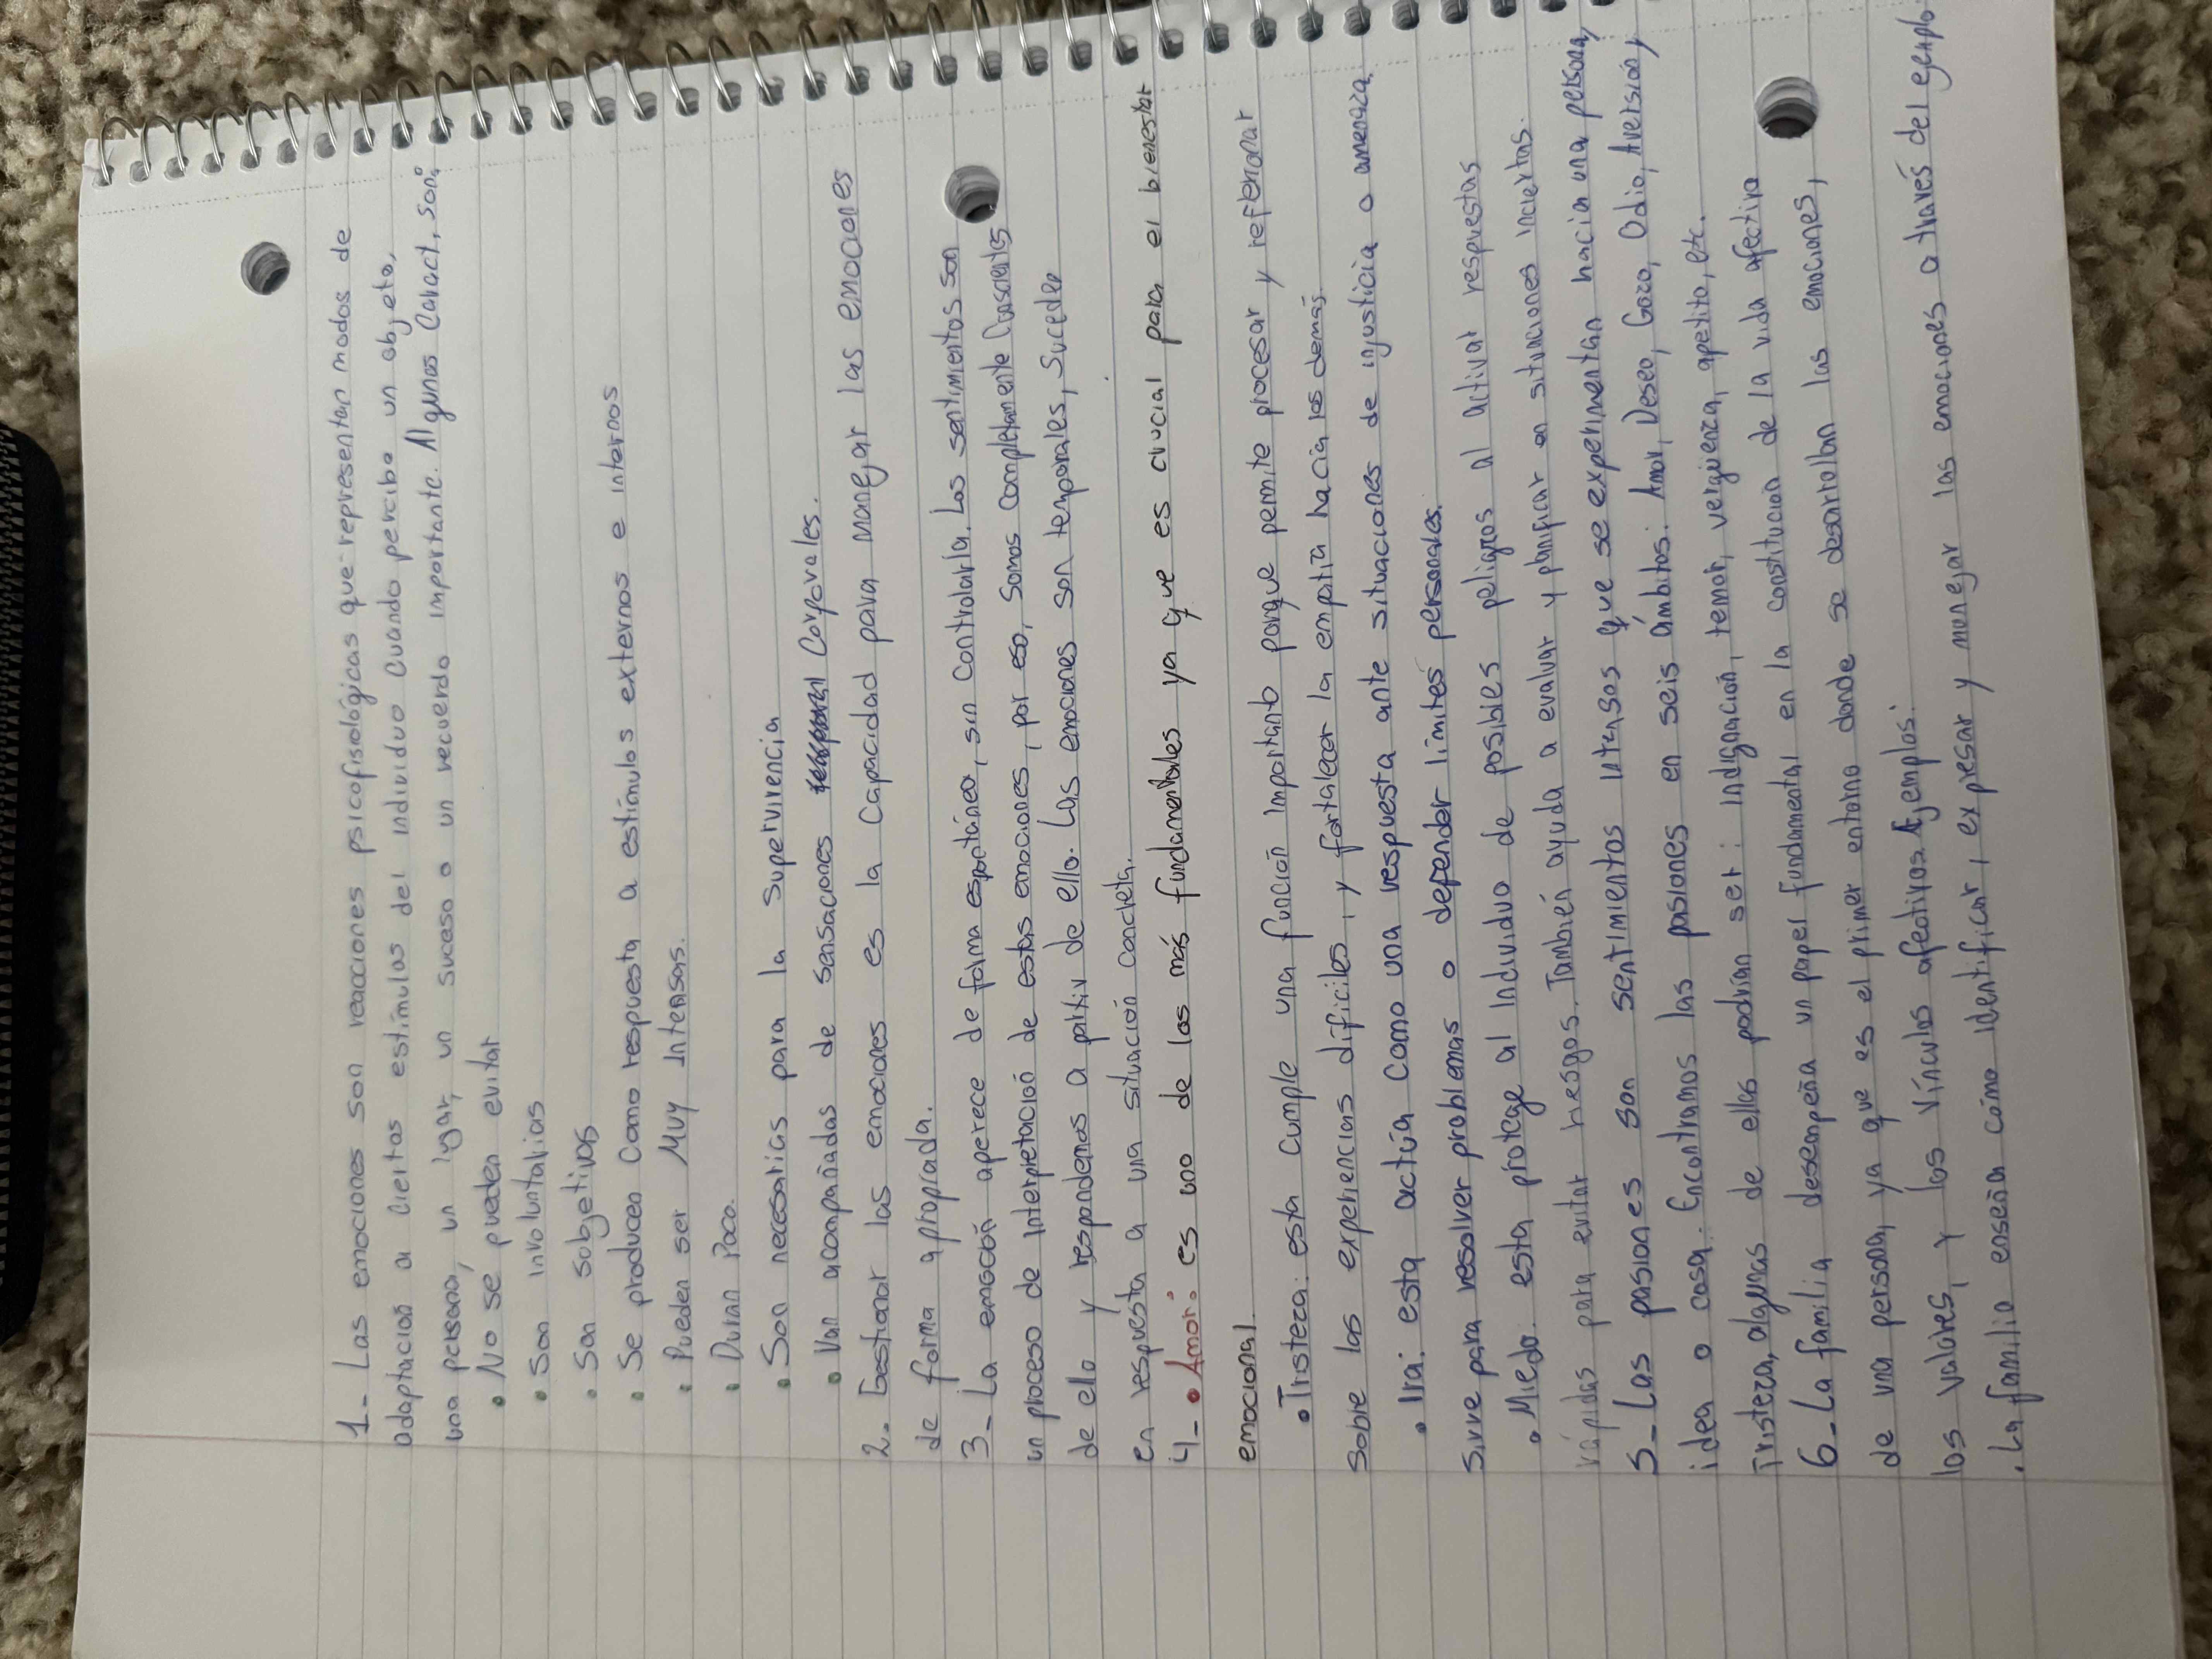 1_ Las emociones son reacciones psicofisiológicas que representan modos de
adaptación a ciertos estímulos del individuo cuando percibe un objeto,
una persona, un lugar, un suceso o un recuerdo importante. Algunas Caract. son:
• No se pueden evitar
• Son involuntarias
• Son subjetivas
• Se producen como respuesta a estímulos externos e internos
• Pueden ser Muy Intensas.
• Duran Poco.
• Son necesarias para la supervivencia
• Van acompañadas de sensaciones Corporales.
2_ Gestionar las emociones es la Capacidad para manejar las emociones
de forma apropiada.
3_ La emoción aperece de forma espontánea, sin controlarla. Los sentimientos son
un proceso de interpretación de estas emociones, por eso, somos completamente Conscientes
de ello y respondemos a partir de ello. Las emociones son temporales, suceden
en respuesta a una situación concreta.
4_ • Amor: es uno de los más fundamentales ya que es crucial para el bienestar
emocional.
• Tristeza: esta cumple una función importante porque permite procesar y reflexionar
sobre las experiencias difíciles, y fortalecer la empatía hacia los demás.
• Ira: esta actúa como una respuesta ante situaciones de injusticia o amenaza,
sirve para resolver problemas o defender límites personales.
• Miedo: esta protege al individuo de posibles peligros al activar respuestas
rápidas para evitar riesgos. También ayuda a evaluar y planificar en situaciones inciertas.
5_ Las pasiones son sentimientos intensos que se experimentan hacia una persona,
idea o cosa. Encontramos las pasiones en seis ámbitos: Amor, Deseo, Gozo, Odio, Aversión y
Tristeza, algunas de ellas podrían ser: indignación, temor, vergüenza, apetito, etc.
6_ La familia desempeña un papel fundamental en la constitución de la vida afectiva
de una persona, ya que es el primer entorno donde se desarrollan las emociones,
los valores, y los vínculos afectivos. Ejemplos:
• La familia enseña cómo identificar, expresar y manejar las emociones a través del ejemplo